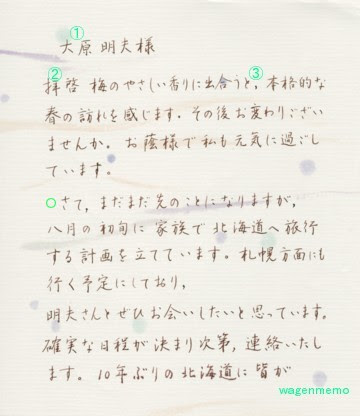 ①
大原 明夫様
② ③
拝啓 梅のやさしい香りに出合うと,本格的な
春の訪れを感じます. その後お変わりござい
ませんか. お蔭様で私も元気に過ごし
ています.
○さて, まだまだ先のことになりますが,
八月の初旬に家族で北海道へ旅行
する計画を立てています. 札幌方面にも
行く予定にしており,
明夫さんとぜひお会いしたいと思っています.
確実な日程が決まり次第, 連絡いたし
ます. 10年ぶりの北海道に皆が
wagenmemo